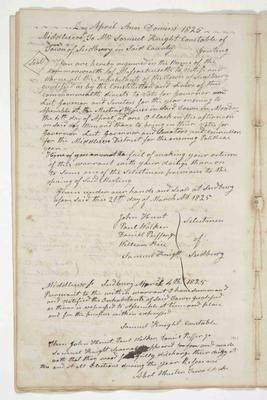 April Ann Domini 1825
Middlesex Ss. To Mr Samuel Knight Constable of
Town of Sudbury in said County Greeting
Seal
You are hereby required in the Name of the
Commonwealth of Massachusetts to Notify and
Warn all the Inhabitants of the Town of Sudbury
qualified as by the Constitution and Laws of this
Commonwealth directs to vote for Governor and
Lieut Governor and Senators for the year ensuing to
Assemble at the Meeting House in said Town on Monday
the 4th day of April at one o'clock in the afternoon
on said day then and there to bring in their votes for
Governor Lieut Governor and Senators and
for the Middlesex District for the ensuing Political
year
Hereof you are not to fail of making your return
of this warrant with your doings thereon
to some one of the Selectmen previous to the
opening of said Meeting
Given under our hands and Seal at Sudbury
aforesaid this 21st day of March AD 1825
John Hunt
Paul Walker
Daniel Puffer
William Rice
Selectmen
of
Samuel Knight Sudbury
Middlesex Ss Sudbury 4th 1825
Pursuant to the within warrant
and notified the Inhabitants of said Town qualified
as therein is expressed to Assemble at time and place
and for the purpose within expressed
Samuel Knight Constable
Then John Hunt Paul Walker Daniel Puffer
Samuel Knight appeared and made
oath that they would faithfully discharge their duty at
this and at all Elections during the year before me
Abel Wheeler Town Clk